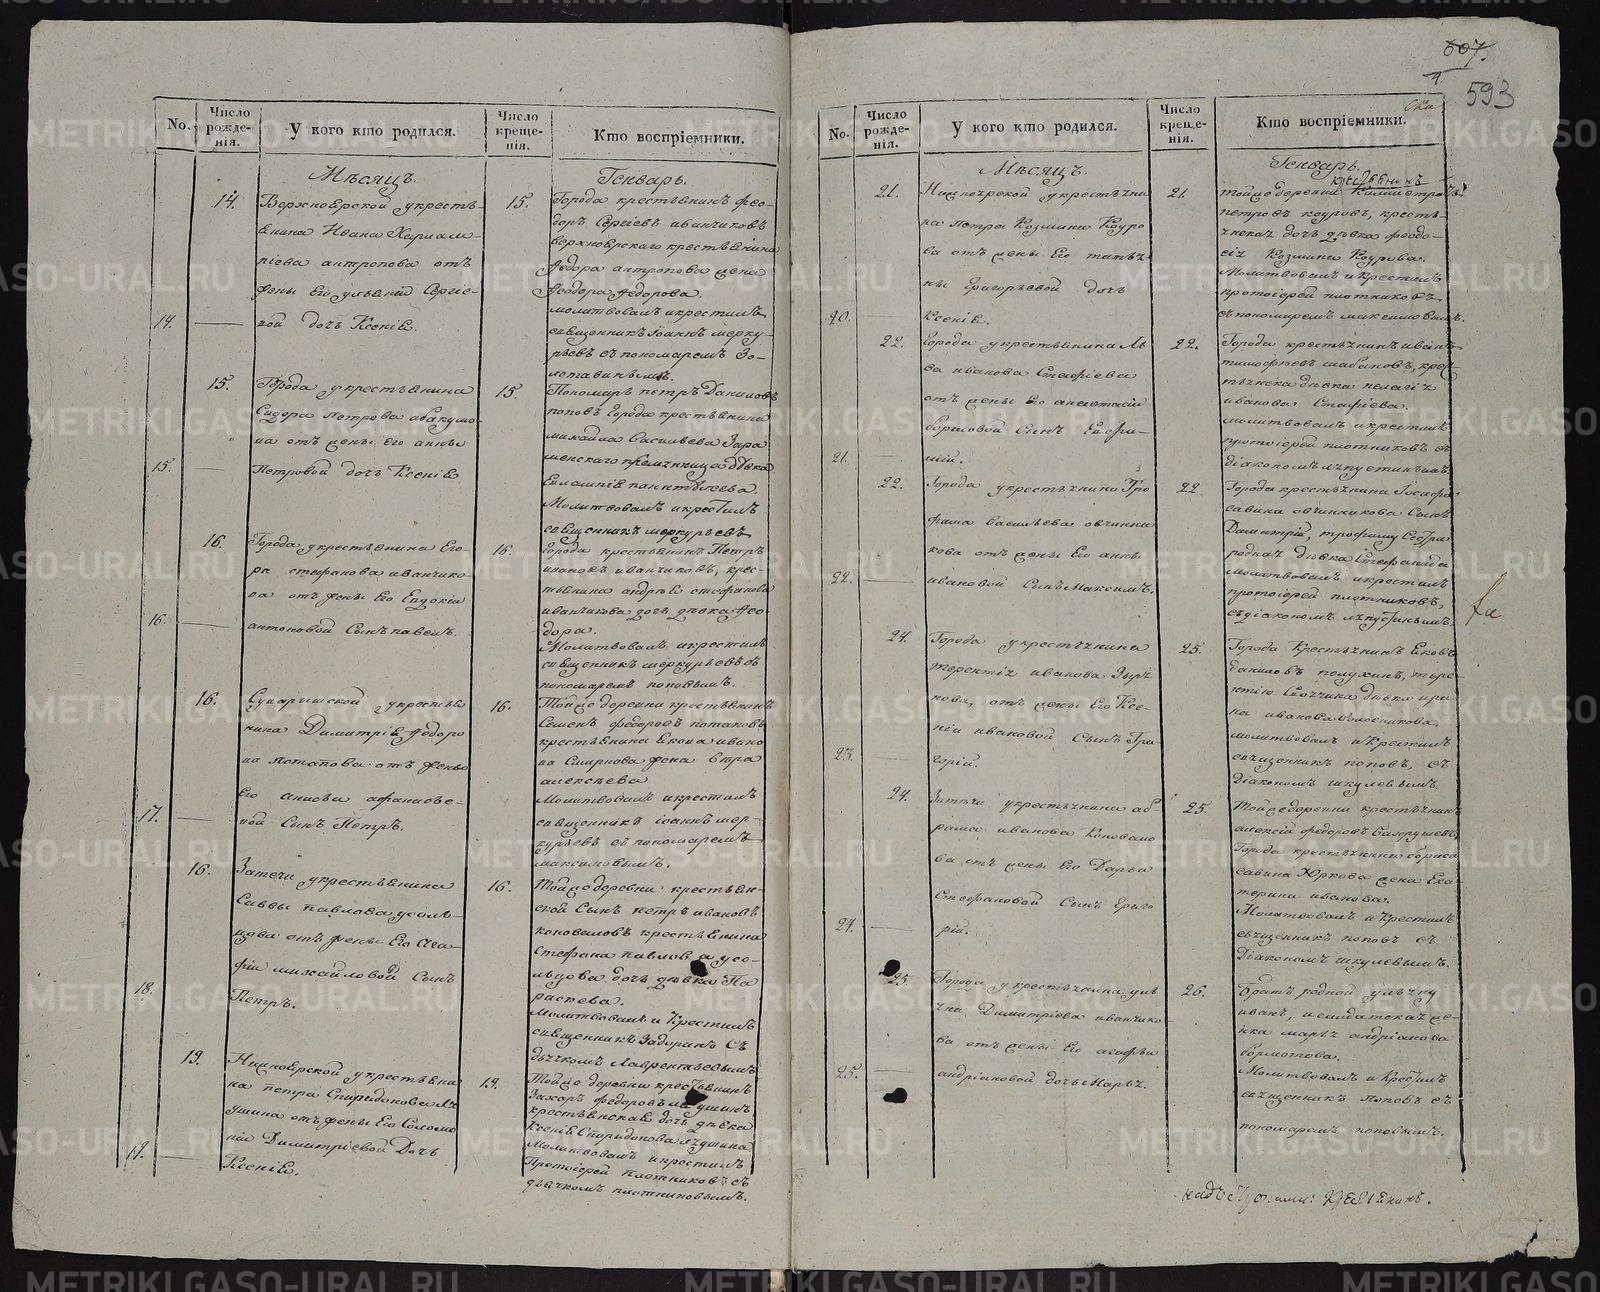 607.
4.
593
No.
Число рожде-нія.
У кого кто родился.
Число креще-нія.
Кто воспріемники.
Мѣсяцъ.
Генварь.
14.
14.
Верхноерской укрестъ-
янина Ивана Харлам-
піева антропова отъ
жены Его ульяніи Сергіе-
вой дочь Ксеніе.
15.
Города крестьянинъ фео-
доръ Сергіевъ иванчиковъ
верхноерскаго крестьянина
Федора антропова жена
Феодора Федорова.
молитвовалъ икрестилъ
священникъ іоаннъ мерку-
рьевъ съ пономаремъ Зо-
15.
15.
Города укрестьянина
Сидора Петрова абакумо-
ва отъ жены его анны
Петровой дочь Ксеніе
15.
Пономарь петръ Даниловъ
поповъ Города крестьянина
михайла Васильева
дѣвка
Евлампіе пантелеева.
Молитвовалъ икрестилъ
священникъ меркурьевъ
16.
16.
Города укрестьянина Его-
ра стефанова иванчико-
ва отъ жены Его Евдокіи
антоновой Сынъ павелъ.
16.
Города крестьянинъ Петръ
ивановъ иванчиковъ, крес-
тьянина андрѣе стефанова
иванчикова дочь дѣвка Фео-
дора.
Молитвовалъ икрестилъ
священникъ меркурьевъ съ
пономаремъ поповымъ.
17.
16.
укрестья-
нина Димитріе Федоро
ва Потапова отъ жены
Его анисьи афанасье-
вой Сынъ Петръ.
16.
Тойже деревни крестьянинъ
Семенъ федоровъ потаповъ
крестьянина Якова ивано
ва Смирнова жена вѣра
алексѣева
Молитвовалъ икрестилъ
священникъ іоаннъ мер-
курьевъ съ пономаремъ
максимовымъ.
18.
16.
Затечи укрестьянина
Саввы павлова усоль-
цова отъ жены Его Ага-
фіи михайловой Сынъ
Петръ.
16.
Тойже деревни крестьян-
ской Сынъ петръ ивановъ
коноваловъ крестьянина
Стефана павлова усо-
льцова дочь дѣвка Па
раскева.
Молитвовалъ и Крестилъ
священникъ Задоринъ Съ
дьячкомъ Лаврентьевымъ
19.
19.
Нижноерской укрестьяни
на петра Спиридонова Ля
ушина отъ жены Его Соломо
ніи Димитріевой Дочь
Ксеніе.
19.
Тойже деревни крестьянинъ
Захаръ федоровъ
крестьянская дочь дѣвка
Ксеніе Спиридонова
Молитвовалъ икрестилъ
Протоіерей плотниковъ съ
дьячкомъ плотниковымъ.
No.
Число рожде-нія.
У кого кто родился.
Число креще-нія.
Кто воспріемники.
Мѣсяцъ.
Генварь.
20.
21.
Нижноерской укрестьяни
на Петра Козмина Коуро
ва отъ жены Его татья-
ны Григорьевой дочь
Ксеніе.
21.
крестьянинъ
тойже деревни
петровъ коуровъ, кресть-
янская дочь дѣвка феодо-
сія Козмина Коурова.
Молитвовалъ икрестилъ
протоіерей плотниковъ
съ пономаремъ максимовымъ.
21.
22.
Города укрестьянина Ль
ва иванова Стафіева
отъ жены Его анастасіи
борисовой Сынъ Евфи-
мій.
22.
Города крестьянинъ иванъ
тимофѣевъ шабановъ, крес-
тьянска дѣвка пелагія
иванова Стафіева.
молитвовалъ икрестилъ
протоіерей плотниковъ съ
діакономъ лапустинымъ.
22.
22.
Города укрестьянина Тро
фима Васильева овчинни
кова отъ жены Его анны
ивановой Сынъ Максимъ.
22
Города крестьянина
савина овчинникова Сынъ
Димитрій, трофиму Сестра
родная дѣвка Стефанида
молитвовалъ икрестилъ
протоіерей плотниковъ,
съ діакономъ лапустинымъ.
23.
24.
Города укрестьянина
терентія иванова Зыря
нова, отъ жены Его Ксе-
ніи ивановой Сынъ Гри-
горій.
25.
Города Крестьянинъ Яковъ
даниловъ полухинъ, тере-
нтію Своячина дѣвка ири-
на иванова Колесникова.
молитвовалъ и Крестилъ
священникъ поповъ, съ
Діакономъ шкулевымъ.
24.
24.
Затечи укрестьянина аб
рама иванова Коновало
ва отъ жены Его Дарьи
Стефановой Сынъ Григо
рій.
25.
Тойже деревни крестьянинъ
алексій федоровъ
Города крестьянина бориса
савина Юркова жена Ека
терина иванова.
Молитвовалъ и Крестилъ
священникъ поповъ съ
Діакономъ шкулевымъ.
25.
25.
Города укрестьянина улья
на Димитріева иванчико-
ва отъ жены Его агафьи
андріановой дочь Марья.
26.
Братъ родной ульяну
иванъ, и салдатская же-
нка марья андріанова
бормотова.
Молитвовалъ и Крестилъ
священникъ поповъ съ
пономаремъ поповымъ.
надъ строками: крестьянинъ.